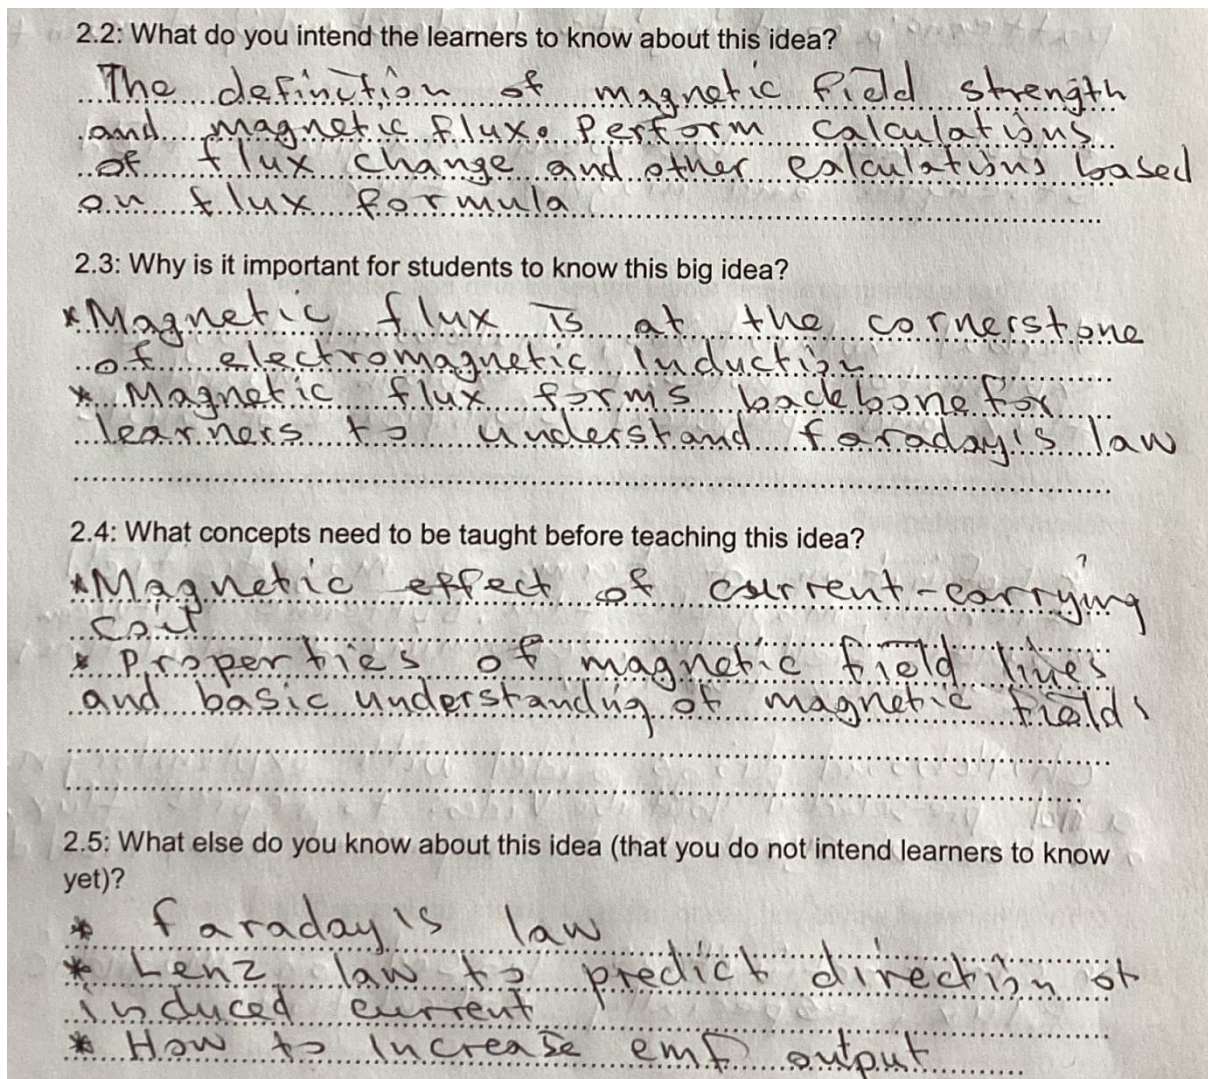 2.2: What do you intend the learners to know about this idea?
The definition of magnetic field strength
and magnetic flux. Perform calculations
of flux change and other calculations based
on flux formula
2.3: Why is it important for students to know this big idea?
*Magnetic flux is at the cornerstone
of electromagnetic induction
* Magnetic flux forms backbone for
learners to understand faraday's law
2.4: What concepts need to be taught before teaching this idea?
*Magnetic effect of current-carrying
coil
* Properties of magnetic field lines
and basic understanding of magnetic fields
2.5: What else do you know about this idea (that you do not intend learners to know
yet)?
* faraday's law
* Lenz law to predict direction of
induced current
* How to increase emf output